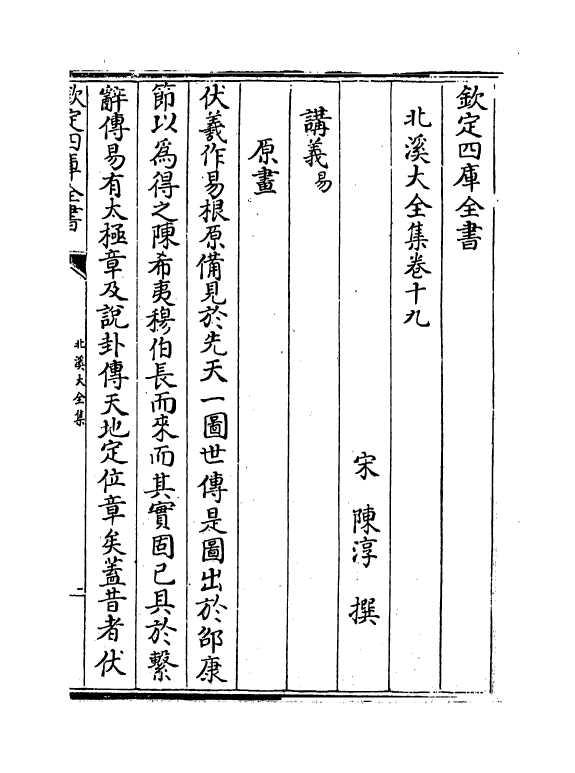 欽定四庫全書
北溪大全集卷十九
宋 陳淳 撰
講義易
原畫
伏羲作易根原備見於先天一圖世傳是圖出於邵康
節以為得之陳希夷穆伯長而來而其實固已具於繫
辭傳易有太極章及說卦傳天地定位章矣蓋昔者伏
欽定四庫全書
北溪大全集